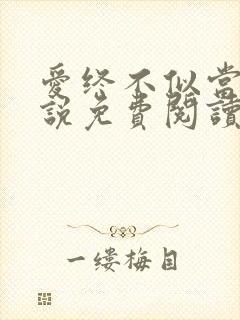 愛終不似當
說免費閱讀
一缕梅目